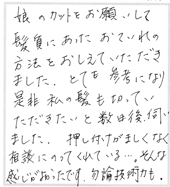 娘のカットをお願いして
髪質にあったお手いれの
方法をおしえていただき
ました。とても参考になり
是非私の髪も切ってい
ただきたいと数日後、伺い
ました。押し付けがましくなく
相談にのってくれている…。そんな
感じがあったです。勿論技術力も。